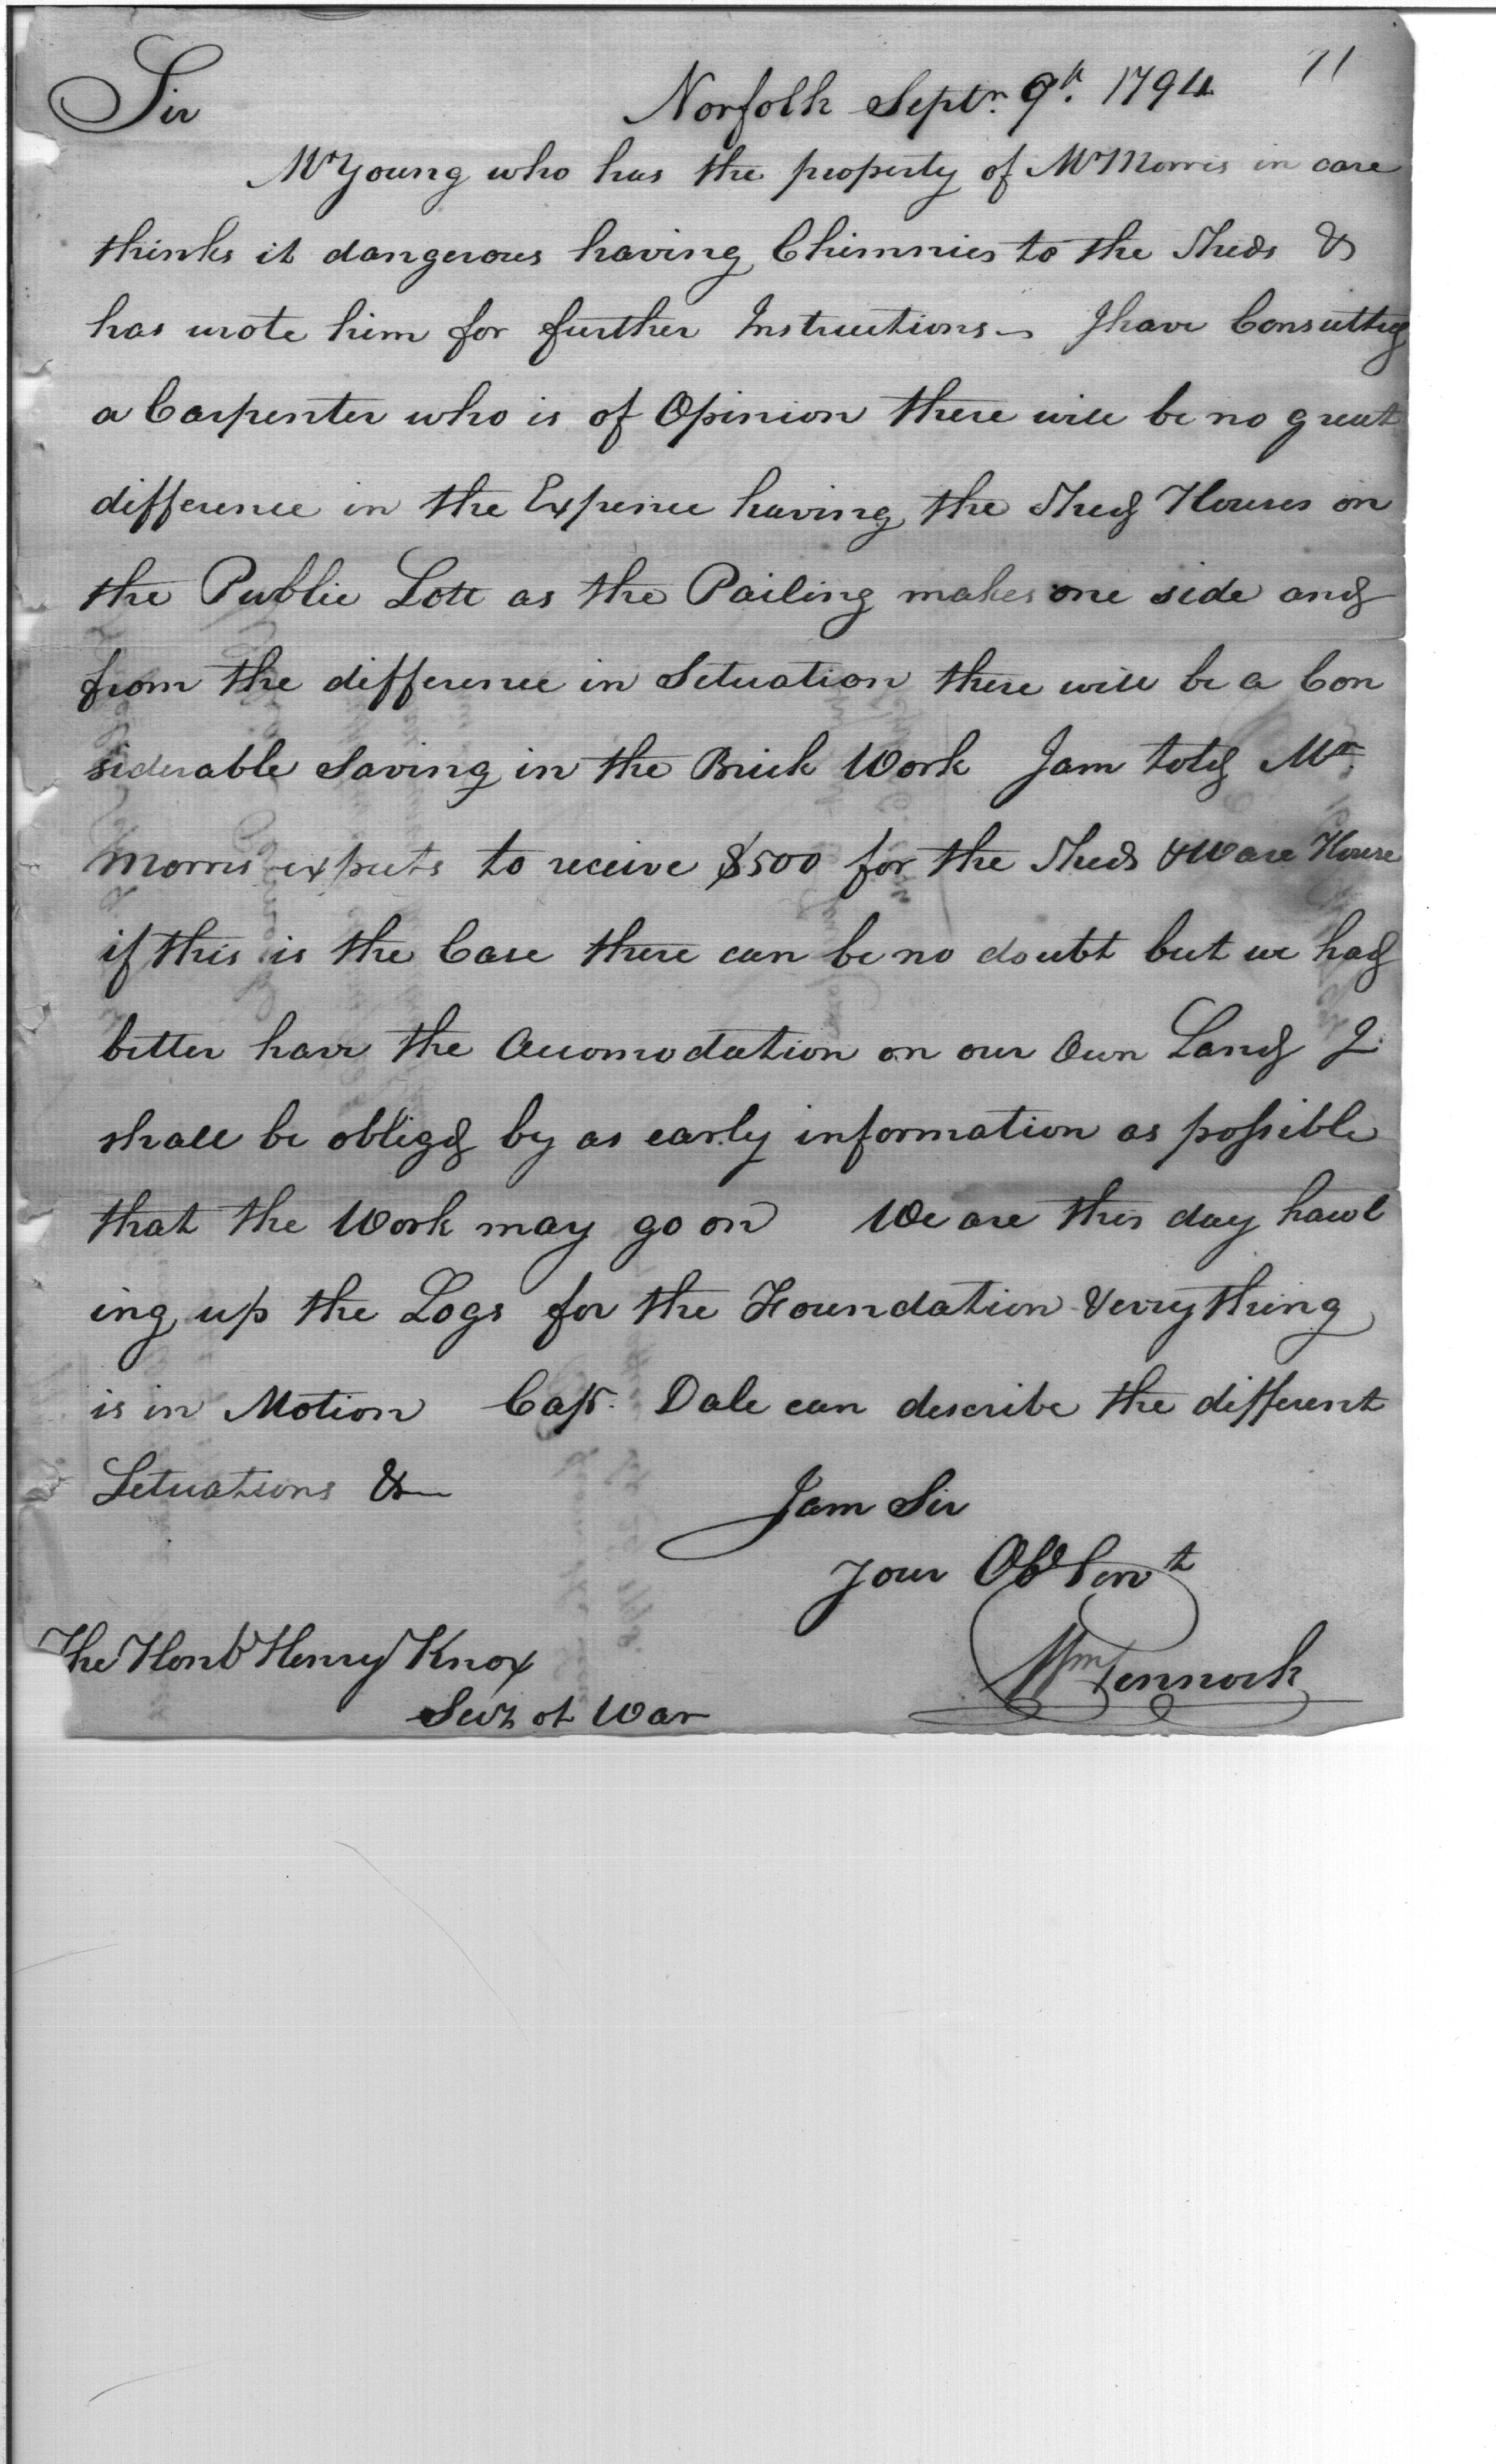 11
Sir Norfolk Septr. 9th. 1794
Mr Young who has the property of Mr Morris in care
thinks it dangerous having Chimnies to the Sheds &
has wrote him for further Instructions - I have Consulted
a Carpenter who is of Opinion there will be no great
difference in the Expence having the Shed Houses on
the Public Lott as the Pailing makes one side and
from the difference in Situation there will be a Con
siderable Saving in the Brick Work I am told Mr.
Morris expects to receive $500 for the Sheds & Ware House
if this is the Case there can be no doubt but we had
better have the Accomodation on our Own Land I
shall be obliged by as early information as possible
that the Work may go on We are this day hawl
ing up the Logs for the Foundation & every thing
is in Motion Capt. Dale can describe the different
Situations &
I am Sir
Your Ob Servt
The Honb Henry Knox
Wm Pennock
Secy of War